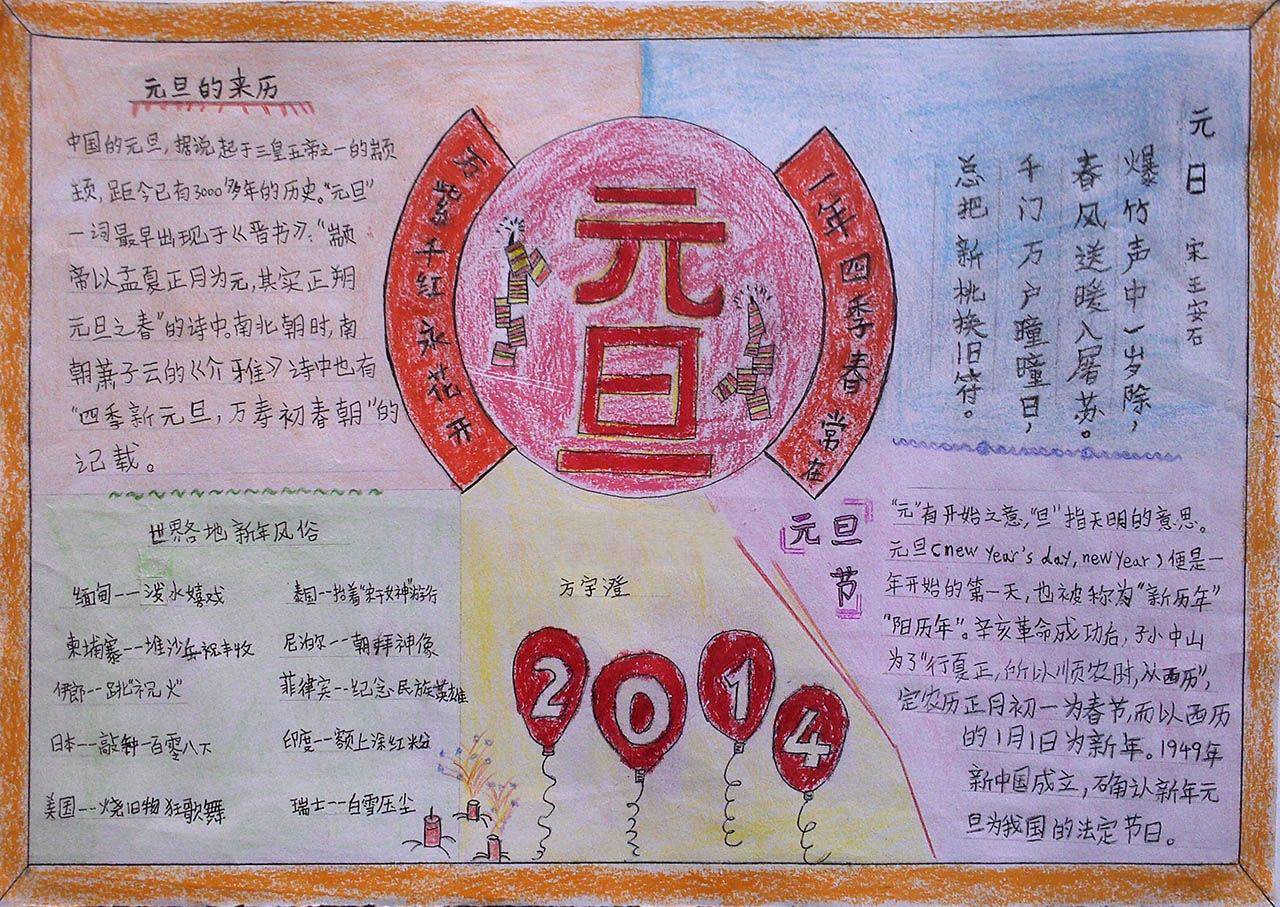 元旦的来历
中国的元旦，据说起于三皇五帝之一的颛
顼，距今已有3000多年的历史。“元旦”
一词最早出现于《晋书》：“颛
帝以孟夏正月为元，其实正朔
元旦之春”的诗中。南北朝时，南
朝萧子云的《介雅》诗中也有
“四季新元旦，万寿初春朝”的
记载。
万紫千红永花开
元旦
一年四季春常在
元日 宋 王安石
爆竹声中一岁除，
春风送暖入屠苏。
千门万户曈曈日，
总把新桃换旧符。
世界各地新年风俗
缅甸--泼水嬉戏
泰国--抬着宋干女神游行
柬埔寨--堆沙丘祝丰收
尼泊尔--朝拜神像
伊郎--跳"祝火"
菲律宾--纪念民族英雄
日本--敲钟一百零八下
印度--额上涂红粉
美国--烧旧物狂歌舞
瑞士--白雪压尘
方宇澄
2014
元旦节
“元”有开始之意，“旦”指天明的意思。
元旦(new year's day, new year)便是一
年开始的第一天，也被称为“新历年”
“阳历年”。辛亥革命成功后，孙中山
为了“行夏正，所以顺农时，从西历”，
定农历正月初一为春节，而以西历
的1月1日为新年。1949年
新中国成立，确认新年元
旦为我国的法定节日。